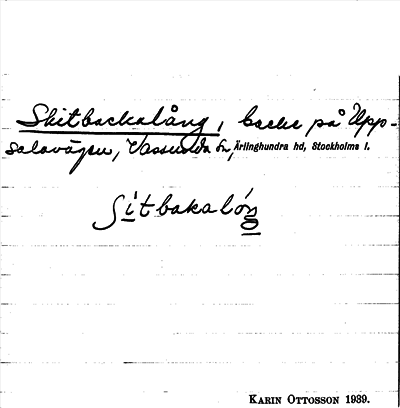 Skitbackalång, backe på Upp-
salavägen, Vassunda sn, Ärlinghundra hd, Stockholms l.
Sitbakalóŋ
KARIN OTTOSSON 1939.